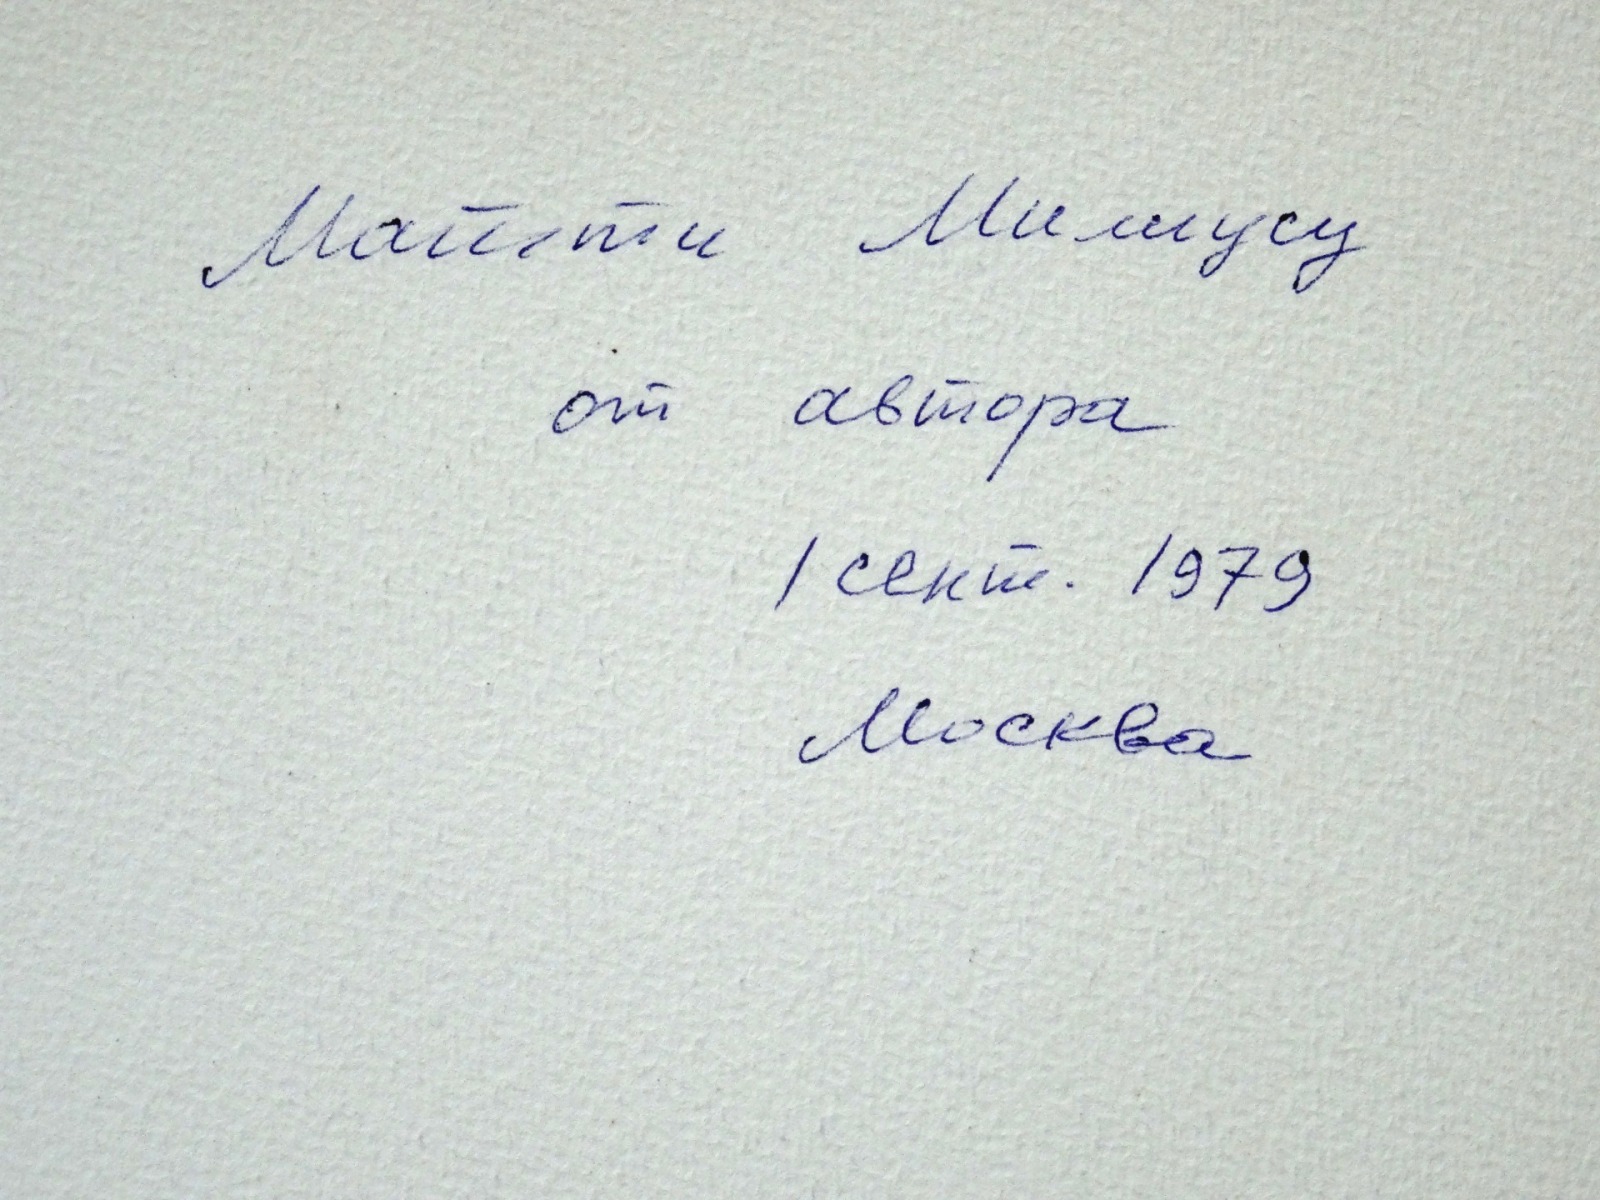 Матти Милиусу
от автора
1 сент. 1979
Москва